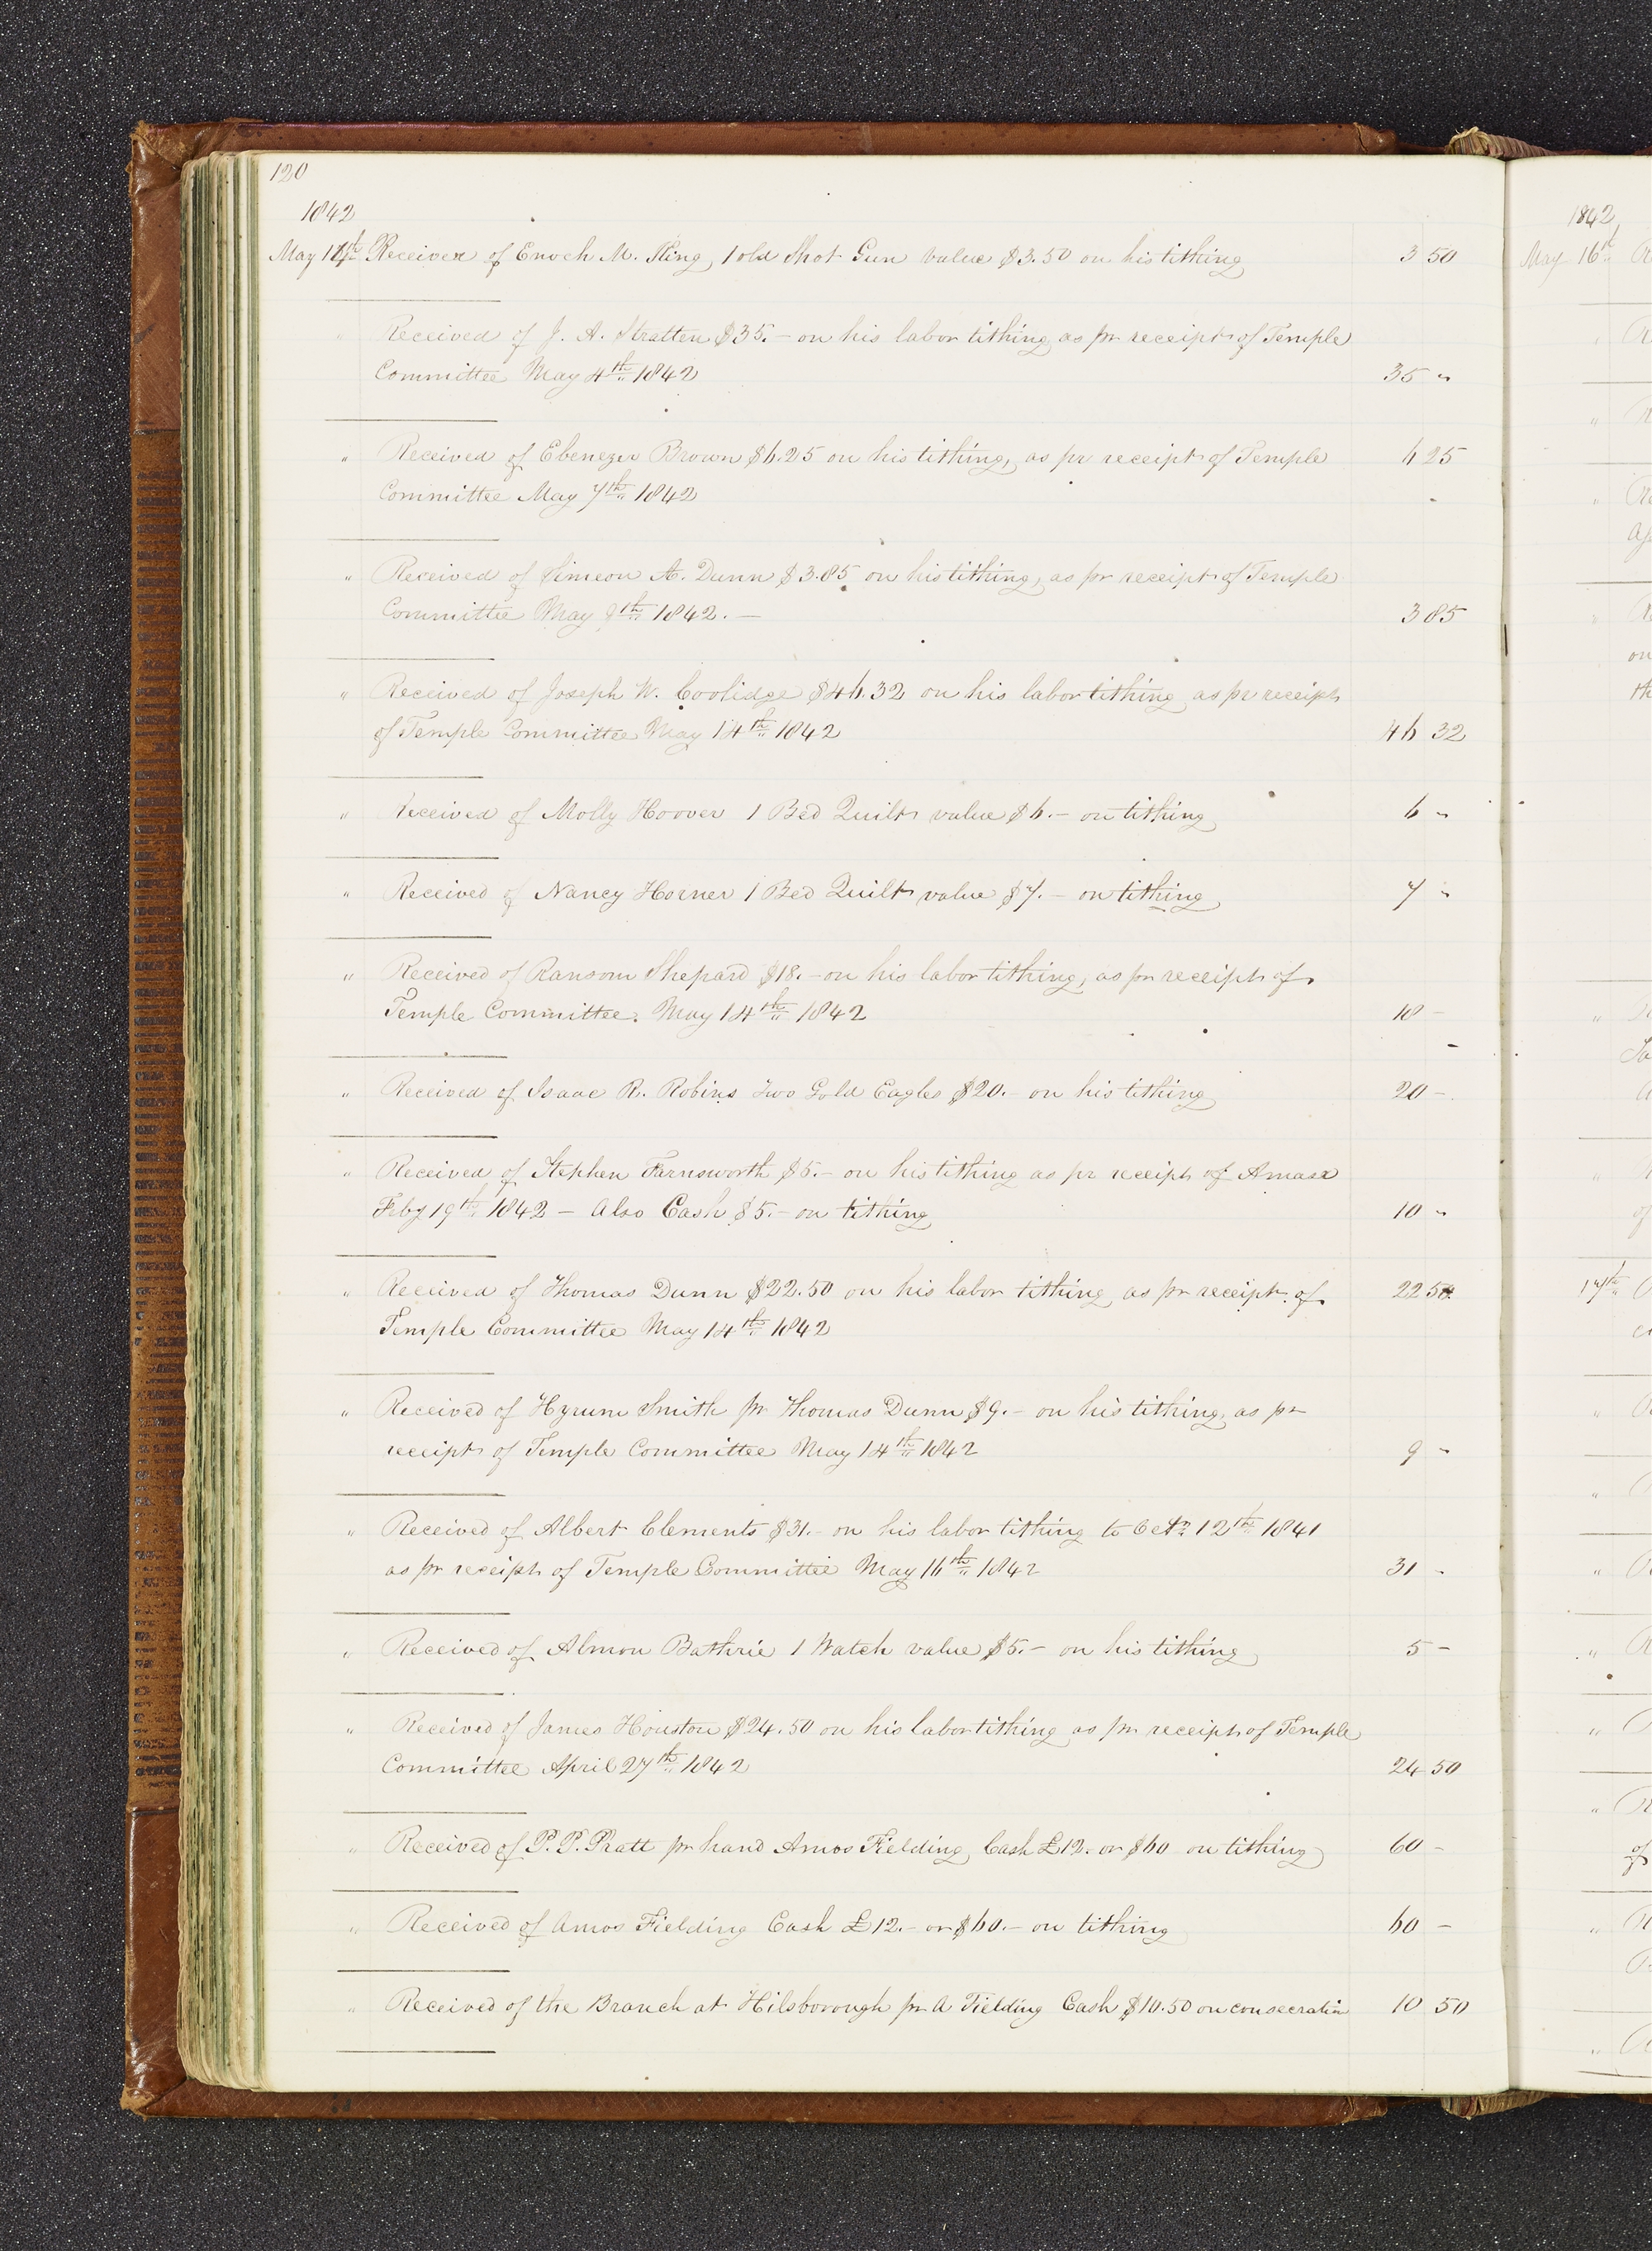 120
1842
May 14th Received of Enoch M. King, 1 old Shot Gun value $3.50 on his tithing 3 50
" Received of J. A. Stratten $35.– on his labor tithing as pr receipt of Temple
Committee May 4th 1842 35 "
" Received of Ebenezer Brown $6.25 on his tithing, as pr receipt of Temple 6 25
Committee May 7th 1842
" Received of Simeon A. Dunn $3.85 on his tithing, as pr receipt of Temple
Committee May 9th 1842. – 3 85
" Received of Joseph W. Coolidge $46.32 on his labor tithing as pr receipt
of Temple Committee May 14th 1842 46 32
" Received of Molly Hoover 1 Bed Quilt value $6.– on tithing 6 "
" Received of Nancy Horner 1 Bed Quilt value $7.– on tithing 7 "
" Received of Ransom Shepard $18.– on his labor tithing, as pr receipt of
Temple Committee. May 14th 1842 18 –
" Received of Isaac R. Robins Two Gold Eagles $20.– on his tithing 20 –
" Received of Stephen Farnsworth $5.– on his tithing as pr receipt of Amasa
Feby 19th 1842 – Also Cash $5.– on tithing 10 "
" Received of Thomas Dunn $22.50 on his labor tithing as pr receipt of 22 50
Temple Committee May 14th 1842
" Received of Hyrum Smith pr Thomas Dunn $9.– on his tithing, as pr
receipt of Temple Committee May 14th 1842 9 –
" Received of Albert Clements $31.– on his labor tithing to Octr 12th 1841
as pr receipt of Temple Committee May 16th 1842 31 –
" Received of Almon Bathrie 1 Watch value $5.– on his tithing 5 –
" Received of James Houston $24.50 on his labor tithing as pr receipt of Temple
Committee April 27th 1842 24 50
" Received of P. P. Pratt pr hand Amos Fielding Cash £12. or $60 on tithing 60 –
" Received of Amos Fielding Cash £12.– or $60.– on tithing 60 –
" Received of the Branch at Hilsborough pr A Fielding Cash $10.50 on consecratin 10 50
1842
May 16th
17th